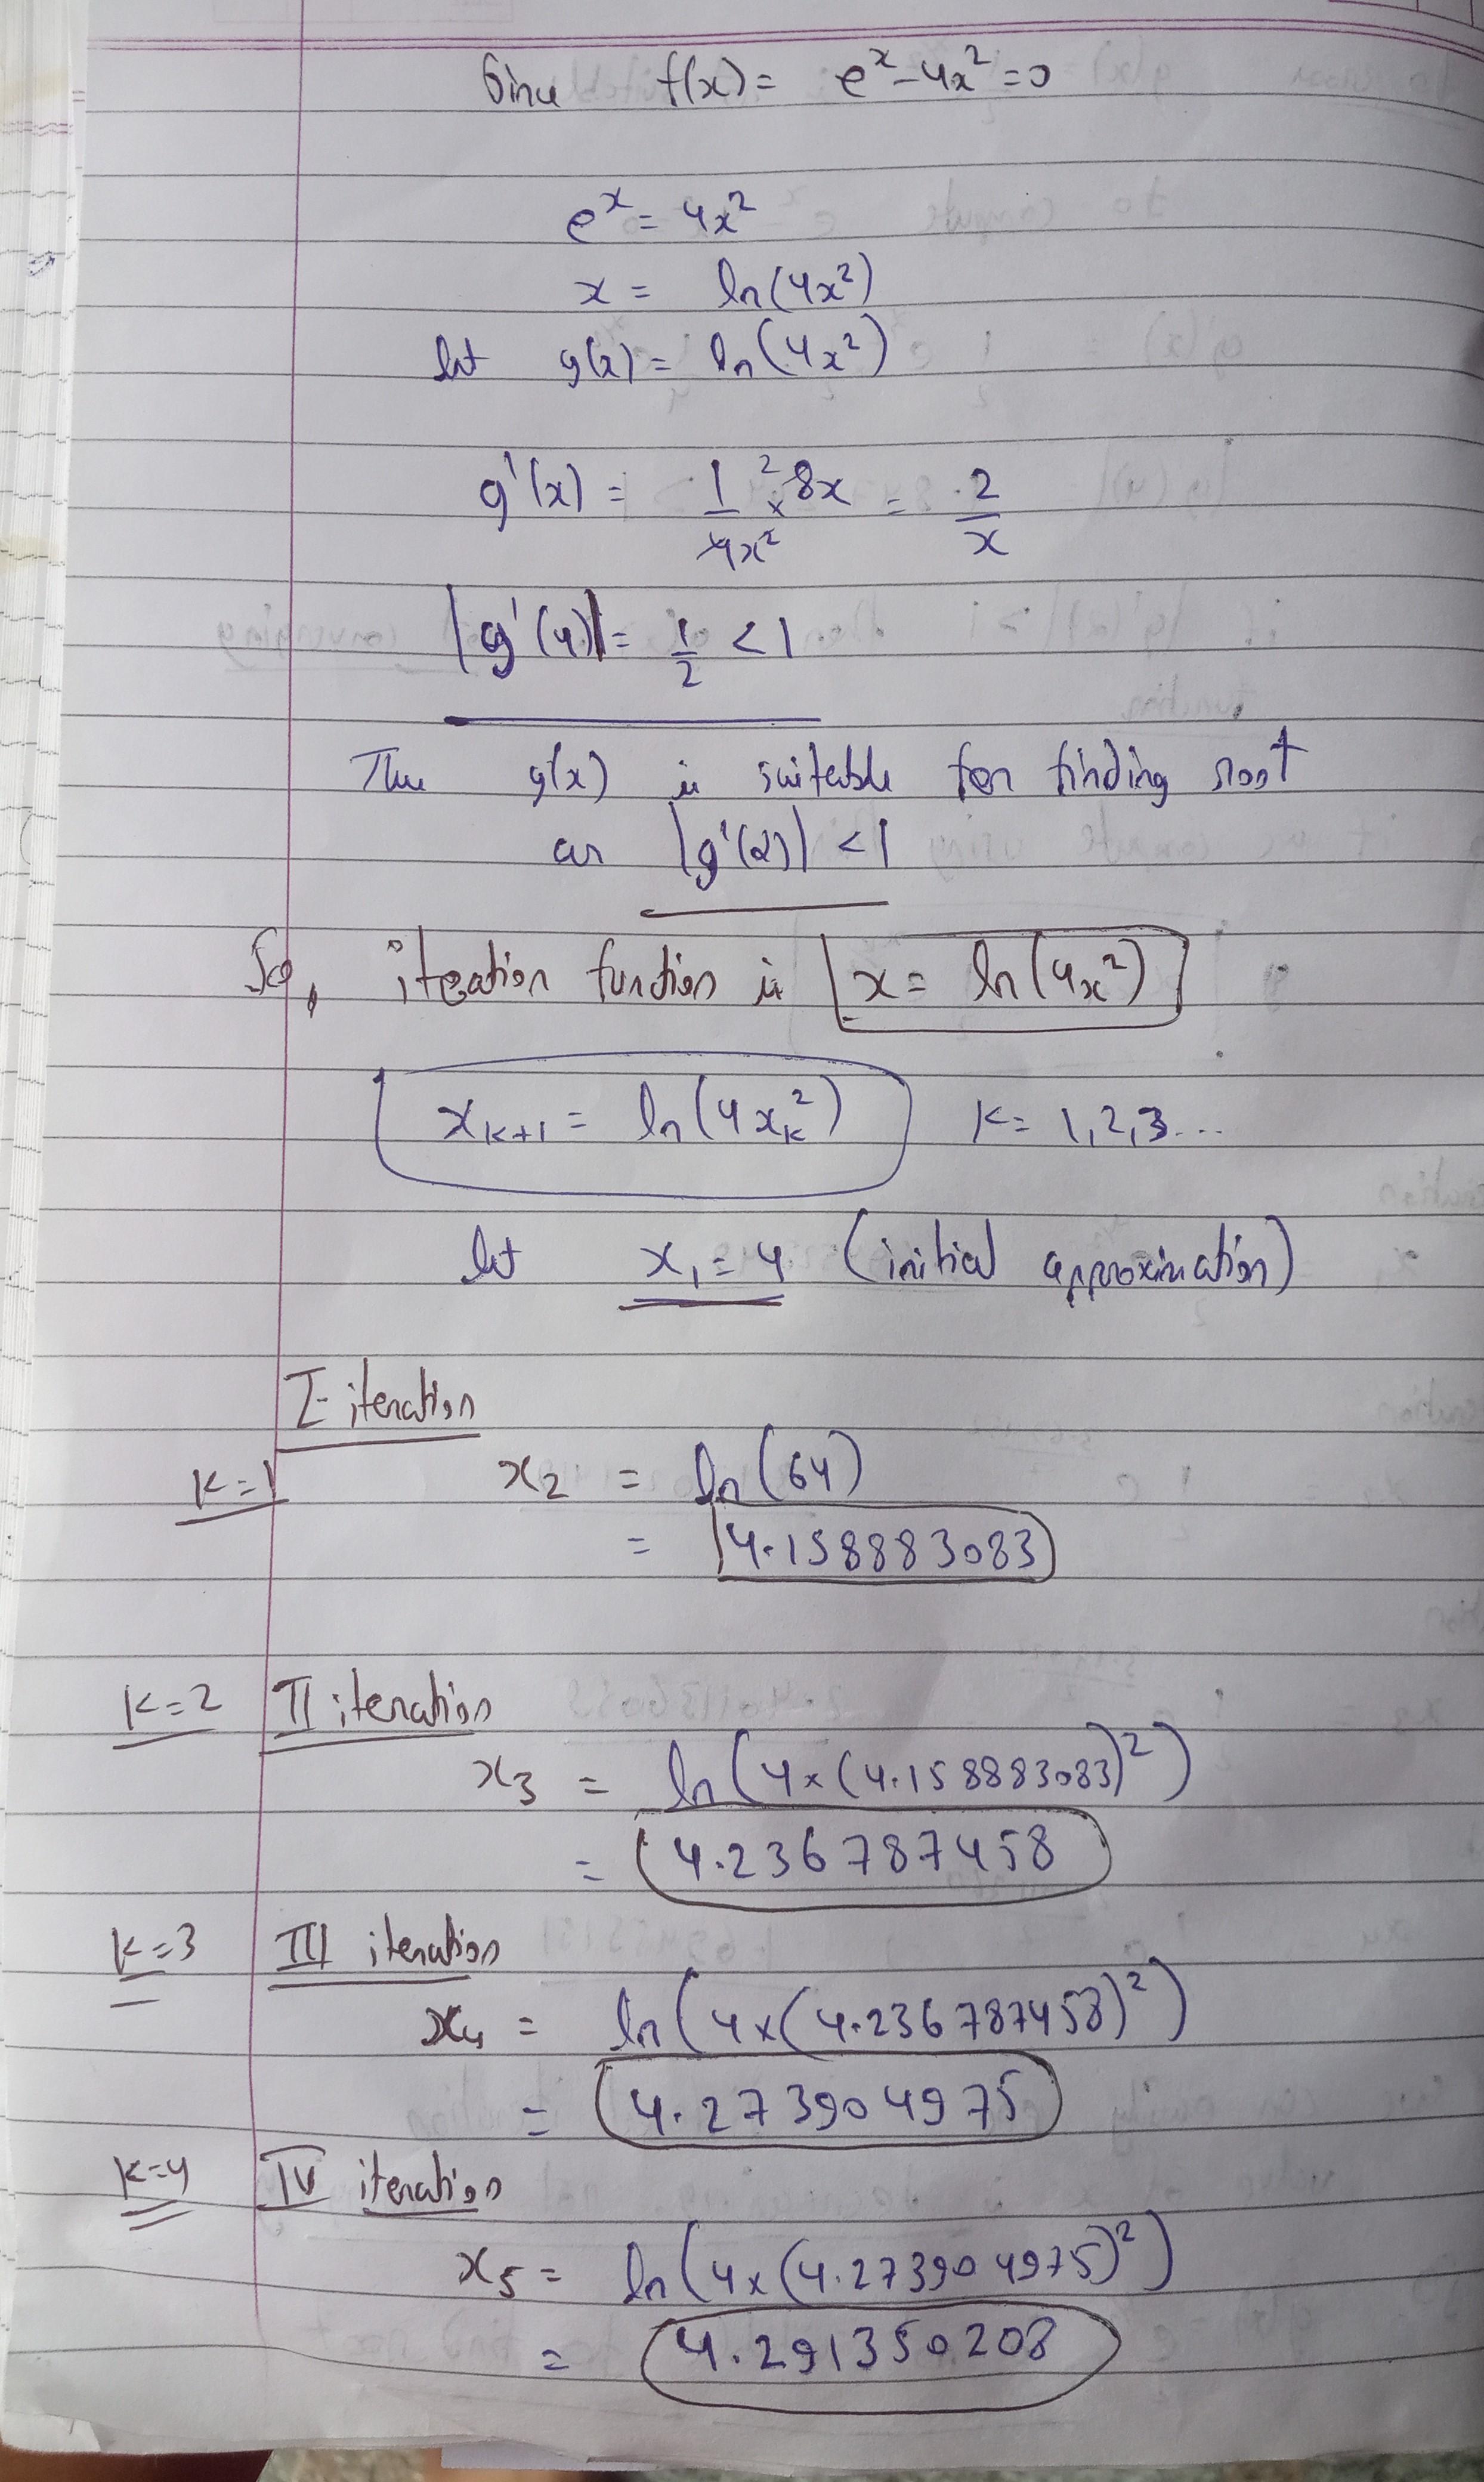 Since f(x) = e^x - 4x^2 = 0
e^x = 4x^2
x = ln(4x^2)
let g(x) = ln(4x^2)
g'(x) = 1/4x^2 × 8x = 2/x
|g'(4)| = 1/2 < 1
The g(x) is suitable for finding root
as |g'(x)| < 1
So, iteration function is x = ln(4x^2)
x_{k+1} = ln(4x_k^2) K = 1,2,3...
let x_1 = 4 (initial approximation)
I-iteration
K=1 x_2 = ln(64)
= 4.158883083
K=2 II iteration
x_3 = ln(4×(4.158883083)^2)
= 4.236787458
K=3 III iteration
x_4 = ln(4×(4.236787458)^2)
= 4.273904975
K=4 IV iteration
x_5 = ln(4×(4.273904975)^2)
= 4.291350208